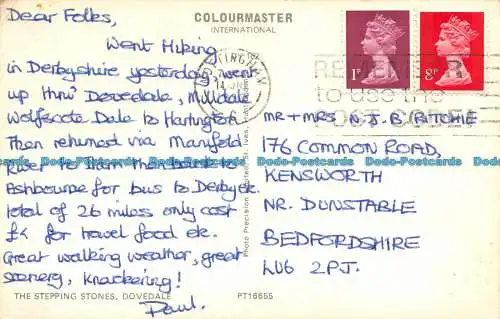 Dear Folks,
Went Hiking
in Derbyshire yesterday, went
up thru' Dovedale, Milldale
Wolfscote Dale to Hartington
Then returned via Manifold
River to Ilam then back to
Ashbourne for bus to Derby etc.
total of 26 miles only cost
for travel food etc.
Great walking weather, great
scenery, Knackering!
Paul.
THE STEPPING STONES, DOVEDALE
COLOURMASTER
INTERNATIONAL
PT16665
NOTTINGHAM
REMEMBER
to use the
POST CODE
1P
8P
MR + MRS N. J. B. RITCHIE
176 COMMON ROAD,
KENSWORTH
NR. DUNSTABLE
BEDFORDSHIRE
LU6 2PJ.
Dodo-Postcards Dodo-Postcards Dodo-Postcards Dodo-Postcards